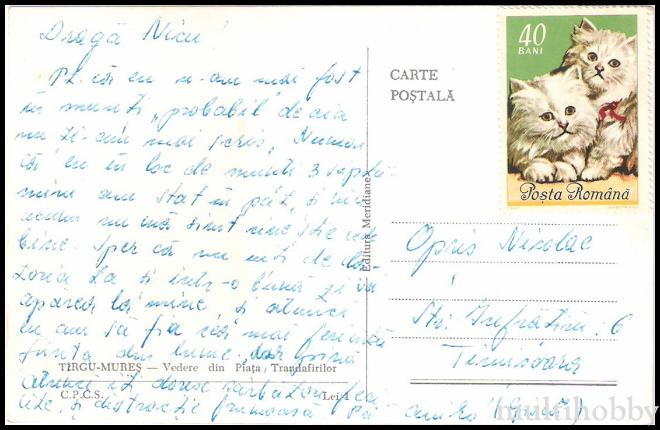 Dragă Nicu!
Pt. că eu n-am mai fost
în munți „probabil” de aia
nu ți-am mai scris. Numai
că eu în loc de munți 3 săptă-
mîni am stat în pat, și nici
acum nu mă simt
bine. Sper că nu uiți de
și într-o bună zi
apărea la mine, și atunci
eu am să fia cea mai fericită
ființă din lume, dar pînă
TÎRGU-MUREȘ — Vedere din Piața Trandafirilor
atunci îți doresc sărbători feri
C.P.C.S. Lei 1
cite, și distracție frumoasă
Editura Meridiane
CARTE
POȘTALĂ
40
BANI
Poșta Română
Opriș Nicolae
Str. Înfrățirii 6
Timișoara
multihobby